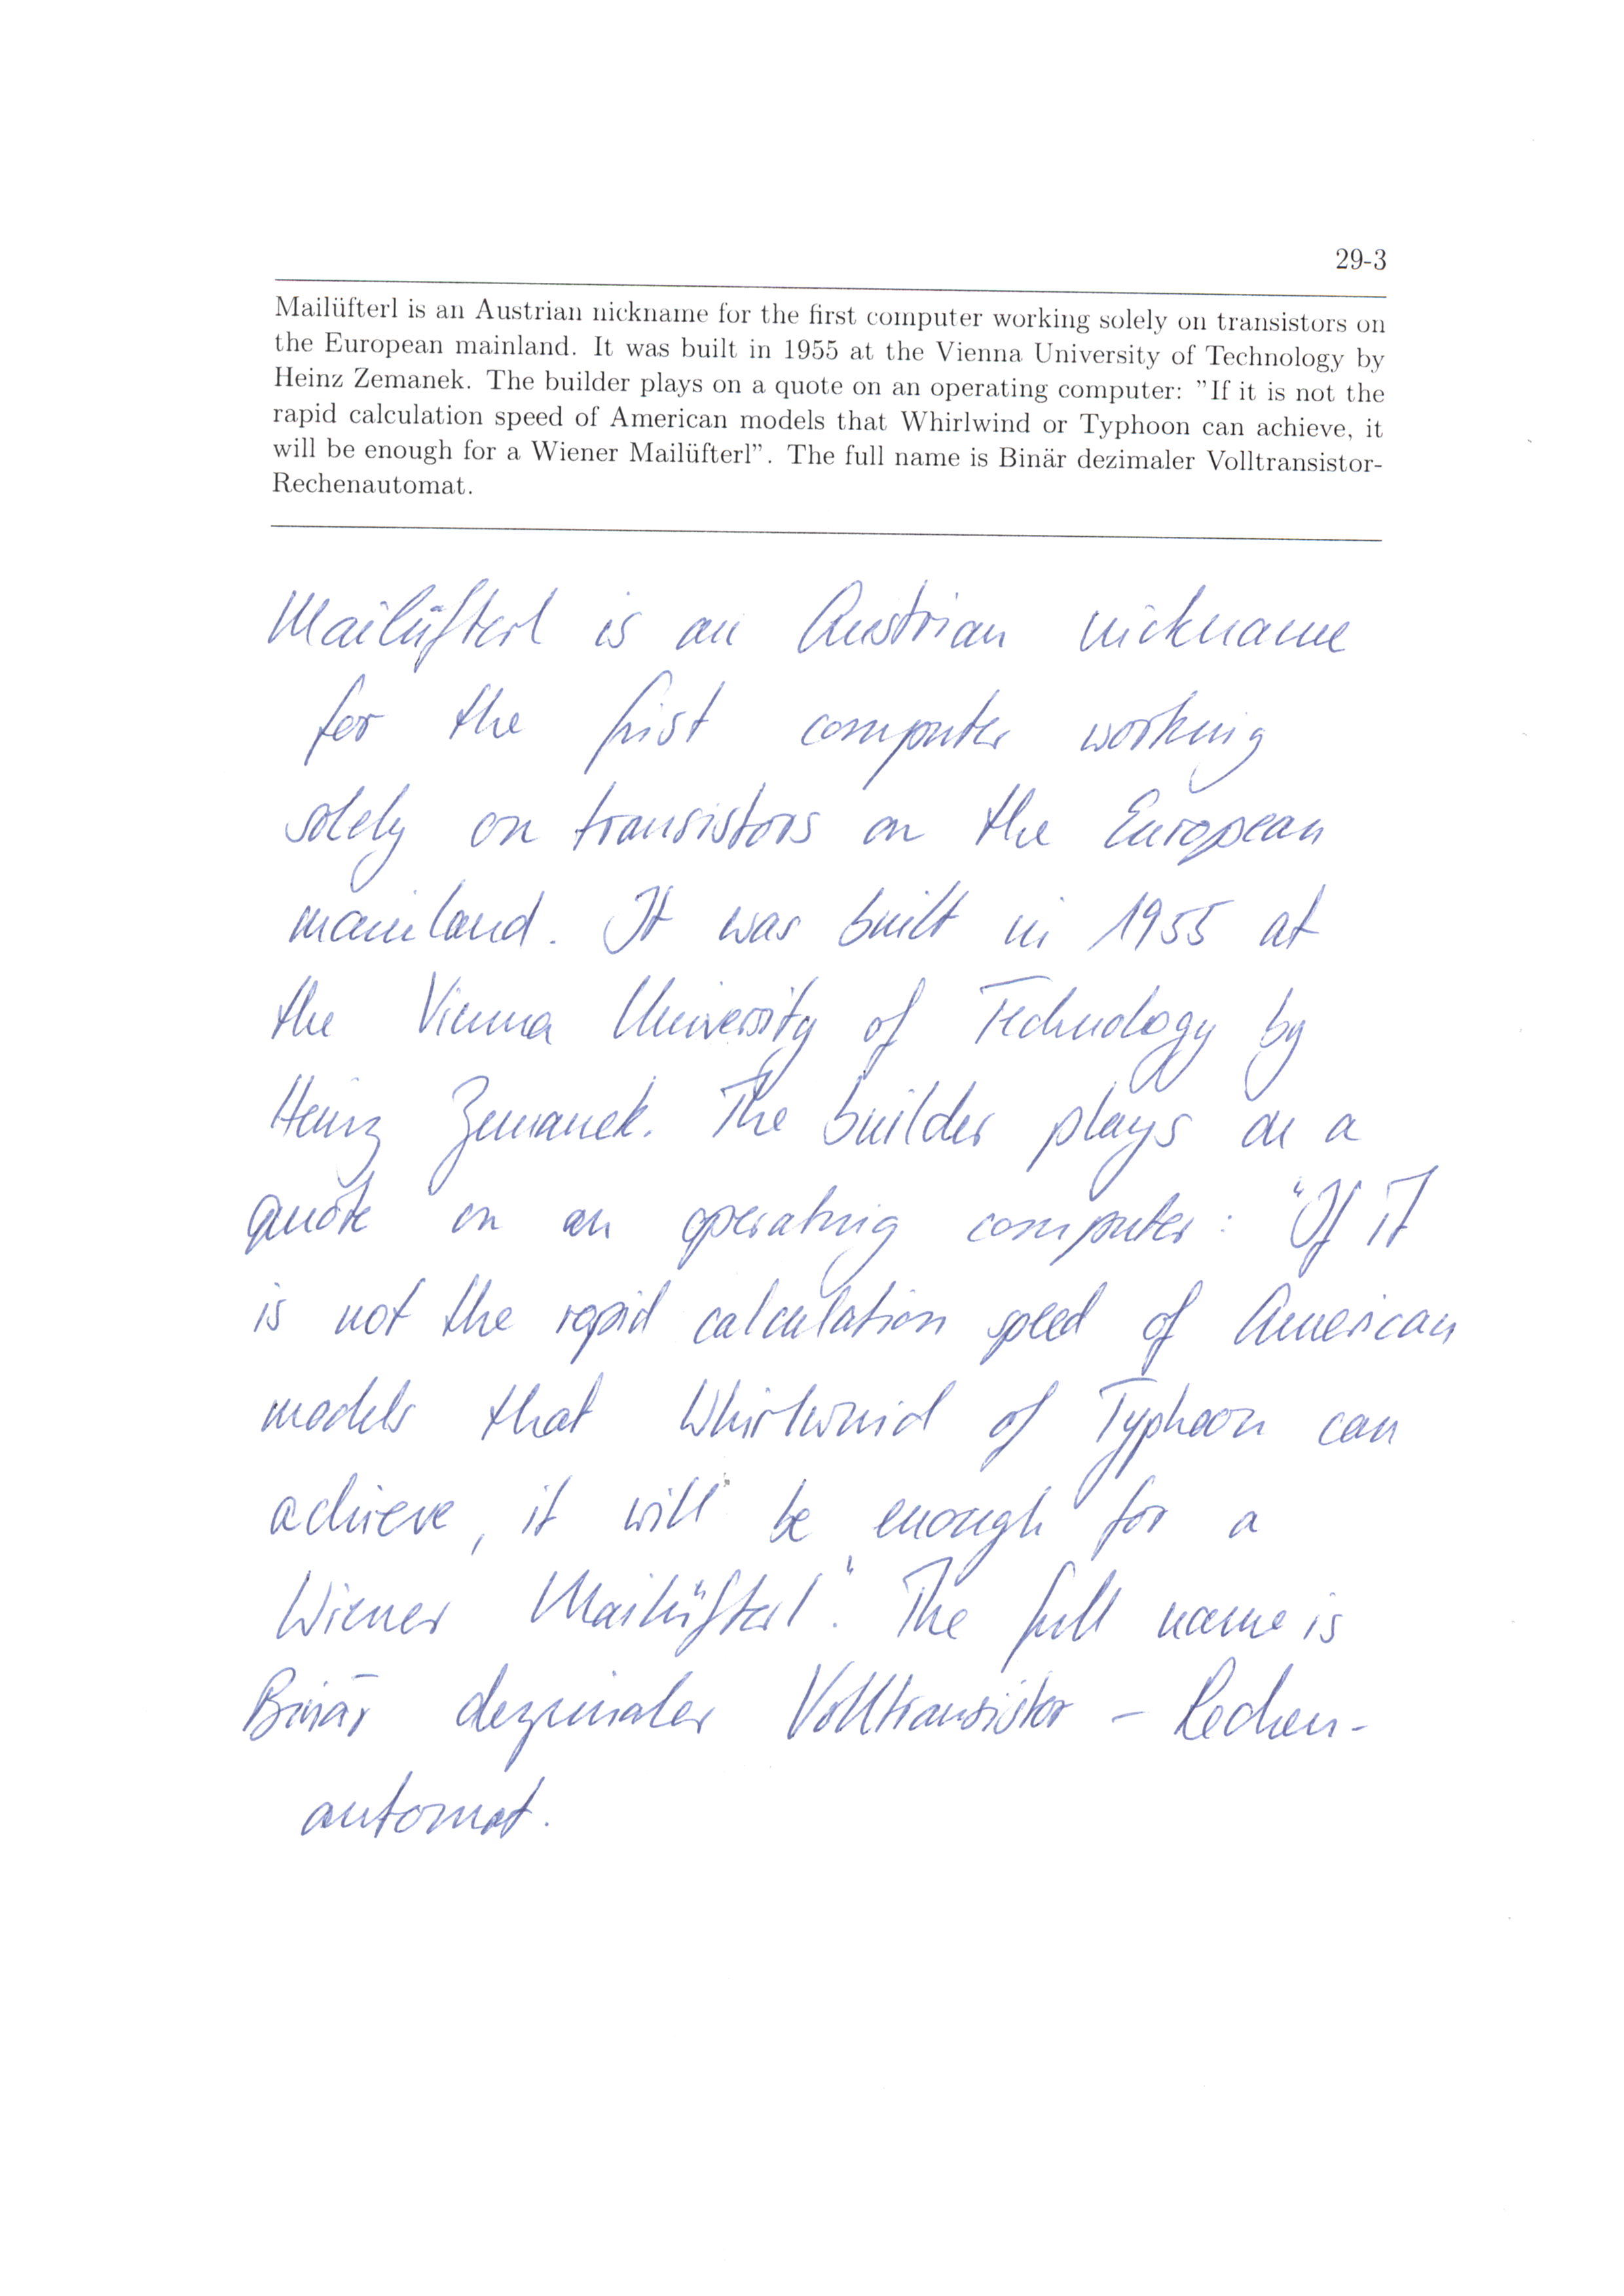 29-3
Mailüfterl is an Austrian nickname for the first computer working solely on transistors on
the European mainland. It was built in 1955 at the Vienna University of Technology by
Heinz Zemanek. The builder plays on a quote on an operating computer: "If it is not the
rapid calculation speed of American models that Whirlwind or Typhoon can achieve, it
will be enough for a Wiener Mailüfterl". The full name is Binär dezimaler Volltransistor-
Rechenautomat.
Mailüfterl is an Austrian nickname
for the first computer working
solely on transistors on the European
mainland. It was built in 1955 at
the Vienna University of Technology by
Heinz Zemanek. The builder plays on a
quote on an operating computer: "If it
is not the rapid calculation speed of American
models that Whirlwind of Typhoon can
achieve, it will be enough for a
Wiener Mailüfterl". The full name is
Binär dezimaler Volltransistor - Rechen-
automat.